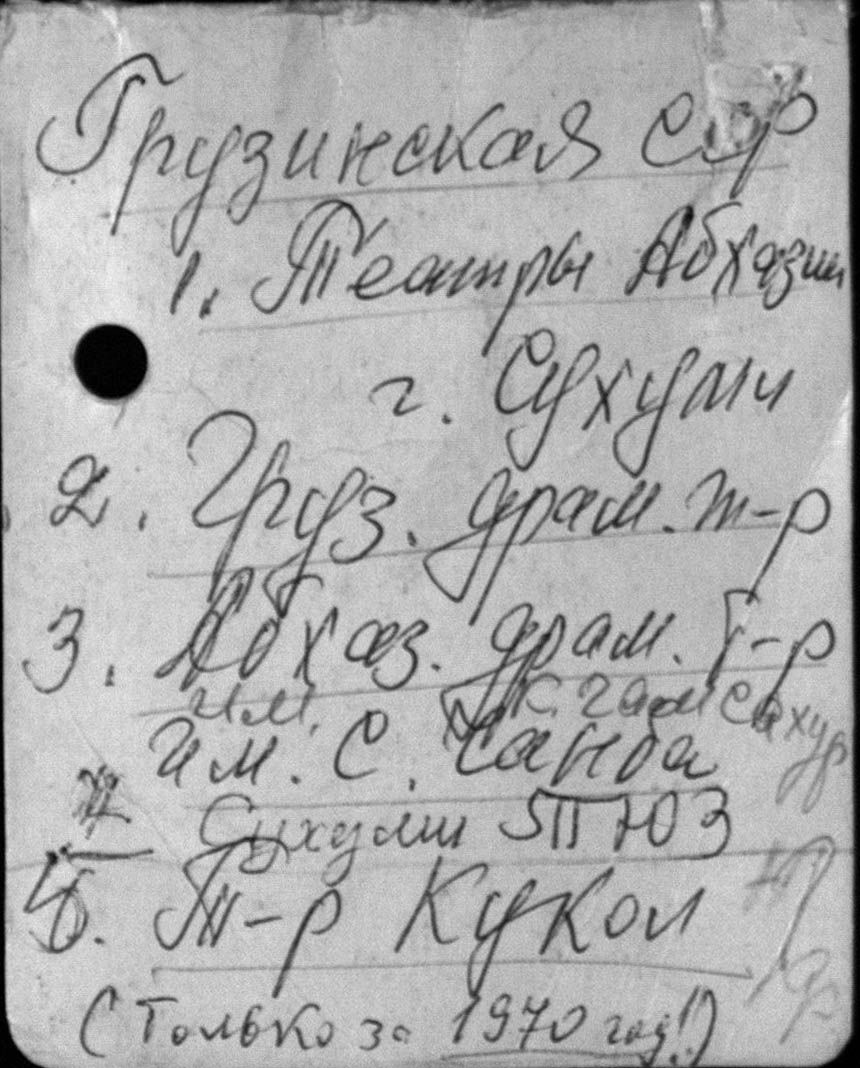 Грузинская ССР
1. Театры Абхазии
г. Сухуми
2. Груз. драм. т-р
3. Абхаз. драм. т-р
им. К. Гам
им. С. Чанба
Сухуми ТЮЗ
5. Т-р Кукол
(Только за 1970 год!)